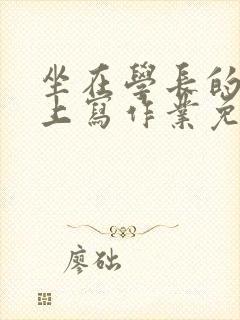 坐在學長的
上寫作業免
廖础